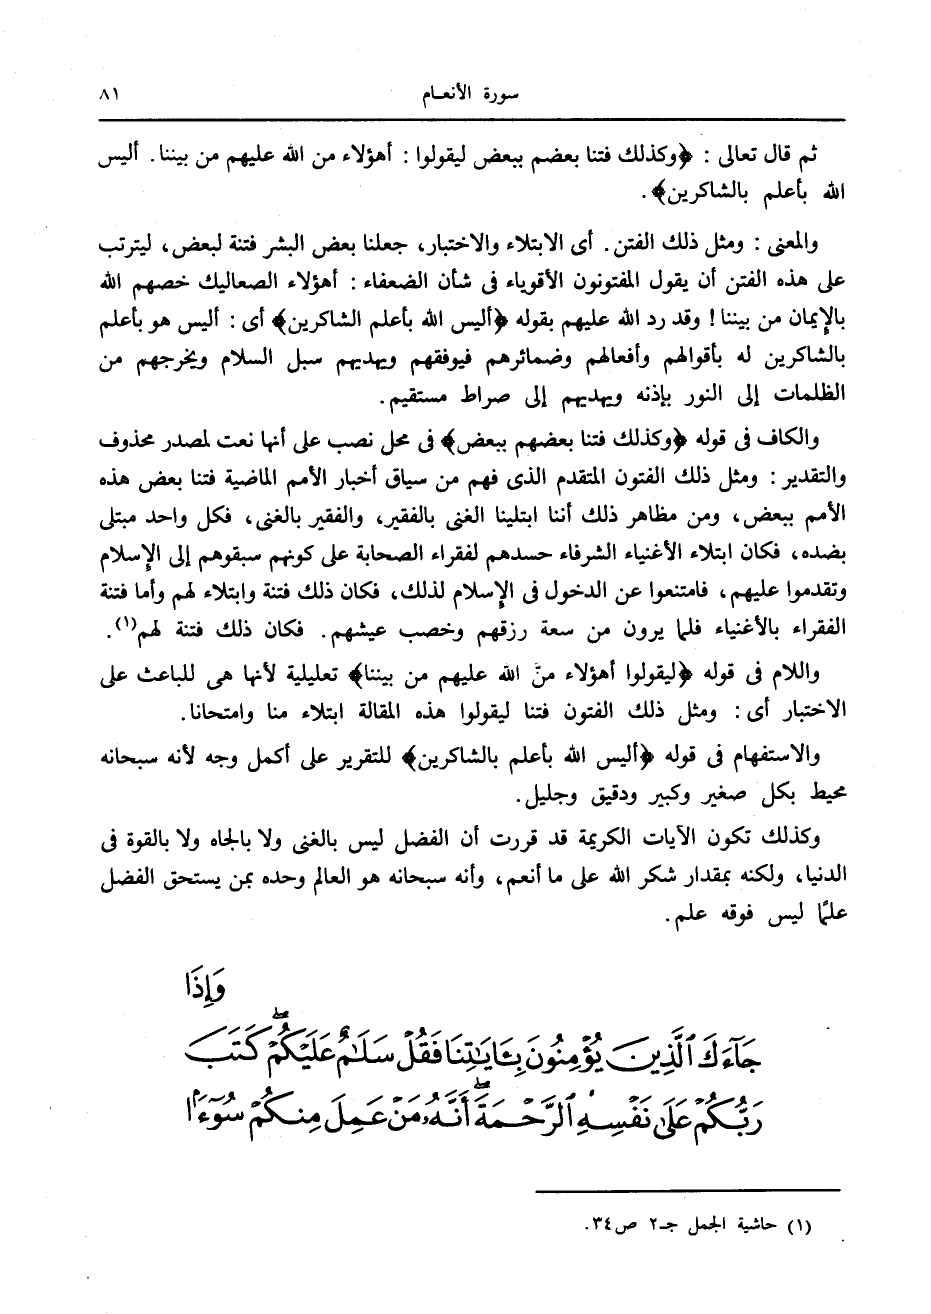 سورة الأنعـام
٨١
ثم قال تعالى : ﴿وكذلك فتنا بعضم ببعض ليقولوا : أهؤلاء من الله عليهم من بيننا. أليس
الله بأعلم بالشاكرين﴾.
والمعنى : ومثل ذلك الفتن. أى الابتلاء والاختبار، جعلنا بعض البشر فتنة لبعض، ليترتب
على هذه الفتن أن يقول المفتونون الأقوياء فى شأن الضعفاء : أهؤلاء الصعاليك خصهم الله
بالإيمان من بيننا! وقد رد الله عليهم بقوله ﴿أليس الله بأعلم الشاكرين﴾ أى : أليس هو بأعلم
بالشاكرين له بأقوالهم وأفعالهم وضمائرهم فيوفقهم ويهديهم سبل السلام ويخرجهم من
الظلمات إلى النور بإذنه ويهديهم إلى صراط مستقيم.
والكاف فى قوله ﴿وكذلك فتنا بعضهم ببعض﴾ فى محل نصب على أنها نعت لمصدر محذوف
والتقدير : ومثل ذلك الفتون المتقدم الذى فهم من سياق أخبار الأمم الماضية فتنا بعض هذه
الأمم ببعض، ومن مظاهر ذلك أننا ابتلينا الغنى بالفقير، والفقير بالغنى، فكل واحد مبتلى
بضده، فكان ابتلاء الأغنياء الشرفاء حسدهم لفقراء الصحابة على كونهم سبقوهم إلى الإسلام
وتقدموا عليهم، فامتنعوا عن الدخول فى الإسلام لذلك، فكان ذلك فتنة وابتلاء لهم وأما فتنة
الفقراء بالأغنياء فلما يرون من سعة رزقهم وخصب عيشهم. فكان ذلك فتنة لهم(١).
واللام فى قوله ﴿ليقولوا أهؤلاء منَّ الله عليهم من بيننا﴾ تعليلية لأنها هى للباعث على
الاختبار أى : ومثل ذلك الفتون فتنا ليقولوا هذه المقالة ابتلاء منا وامتحانا.
والاستفهام فى قوله ﴿أليس الله بأعلم بالشاكرين﴾ للتقرير على أكمل وجه لأنه سبحانه
محيط بكل صغير وكبير ودقيق وجليل.
وكذلك تكون الآيات الكريمة قد قررت أن الفضل ليس بالغنى ولا بالجاه ولا بالقوة فى
الدنيا، ولكنه بمقدار شكر الله على ما أنعم، وأنه سبحانه هو العالم وحده بمن يستحق الفضل
علمًا ليس فوقه علم.
وَإِذَا
جَآءَكَ ٱلَّذِينَ يُؤْمِنُونَ بِـَٔايَـٰتِنَا فَقُلْ سَلَـٰمٌ عَلَيْكُمْ ۖ كَتَبَ
رَبُّكُمْ عَلَىٰ نَفْسِهِ ٱلرَّحْمَةَ ۖ أَنَّهُۥ مَنْ عَمِلَ مِنكُمْ سُوٓءًۢا
(١) حاشية الجمل جـ٢ ص٣٤.